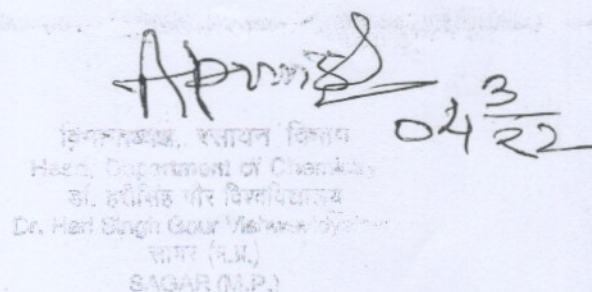 04 3/22
विभागाध्यक्ष, रसायन विभाग
Head, Department of Chemistry
डॉ. हरीसिंह गौर विश्वविद्यालय
Dr. Hari Singh Gour Vishwavidyalaya
सागर (म.प्र.)
SAGAR (M.P.)